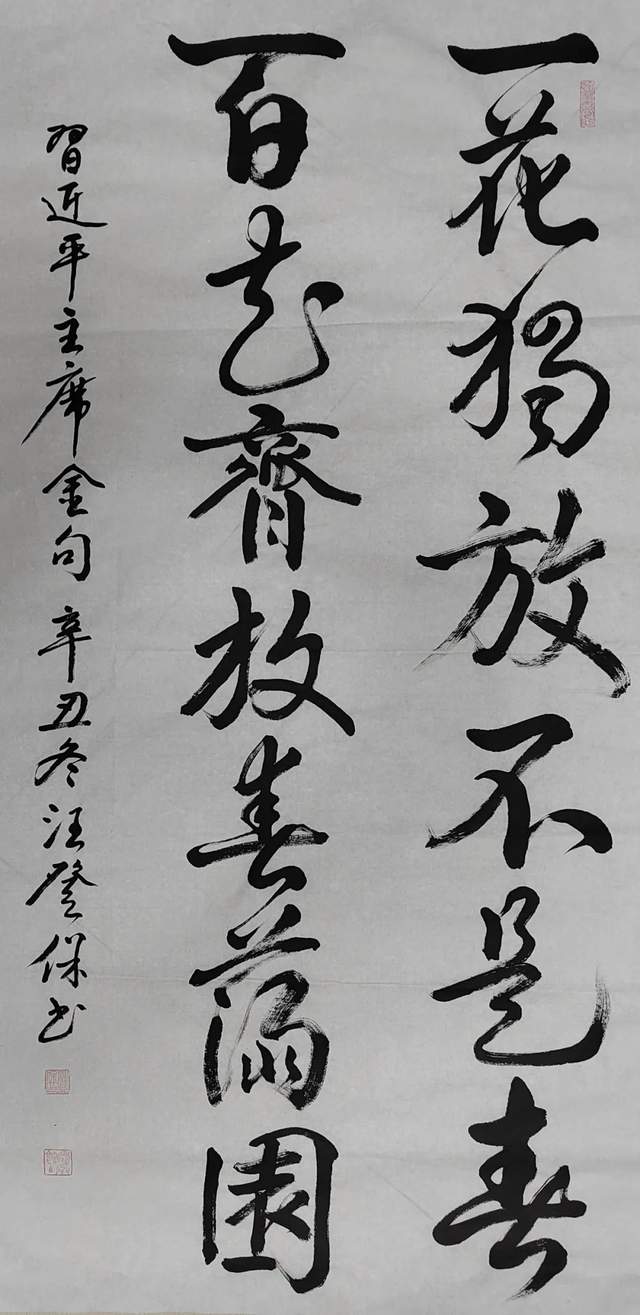 一花獨放不是春
百花齊放春蒲園
習近平主席金句 辛丑冬汪登保书